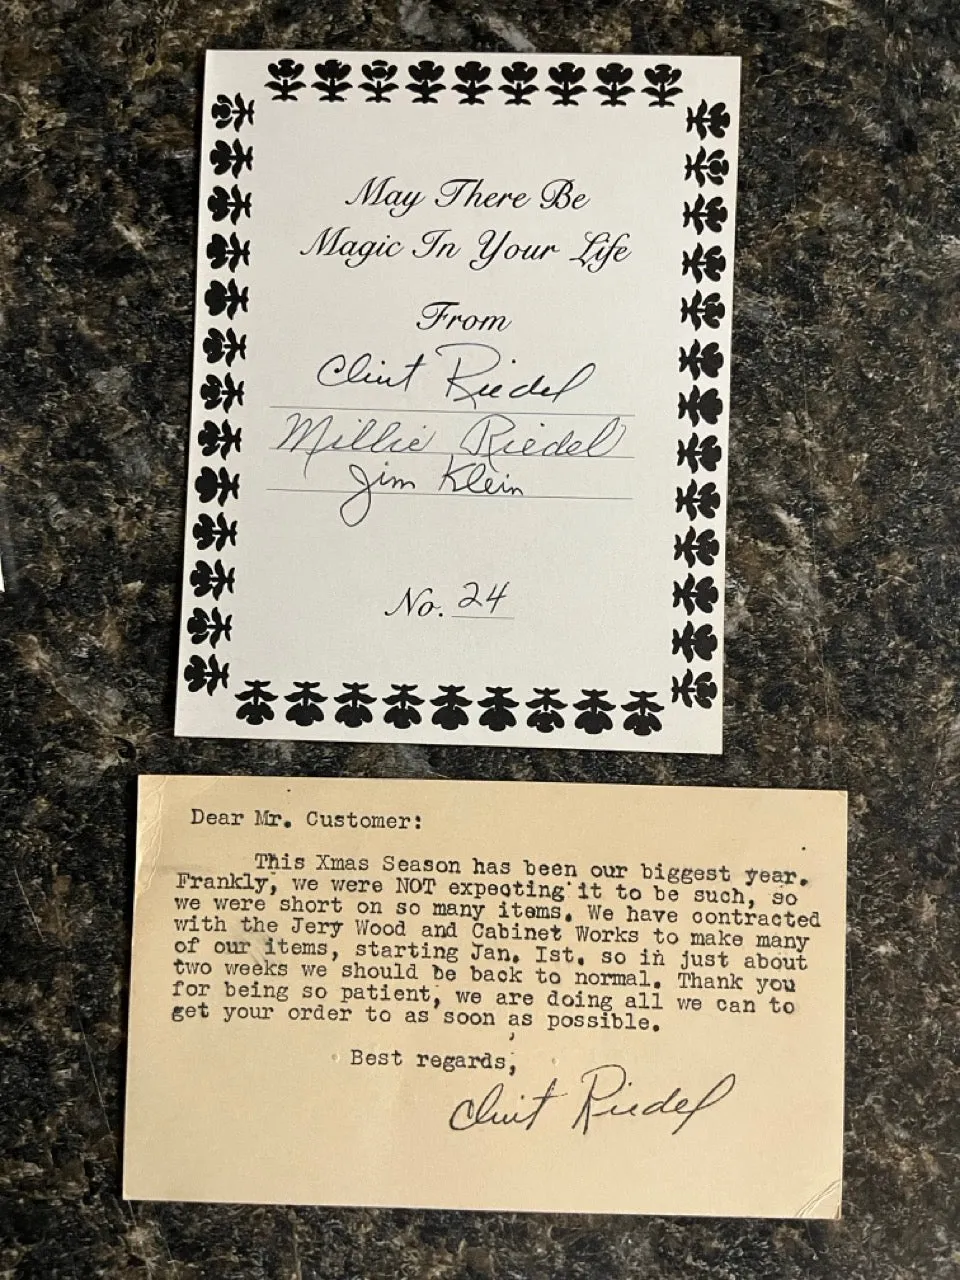 May There Be
Magic In Your Life
From
Clint Riedel
Millie Riedel
Jim Klein
No. 24
Dear Mr. Customer:
This Xmas Season has been our biggest year.
Frankly, we were NOT expecting it to be such, so
we were short on so many items. We have contracted
with the Jery Wood and Cabinet Works to make many
of our items, starting Jan. Ist. so in just about
two weeks we should be back to normal. Thank you
for being so patient, we are doing all we can to
get your order to as soon as possible.
Best regards,
Clint Riedel